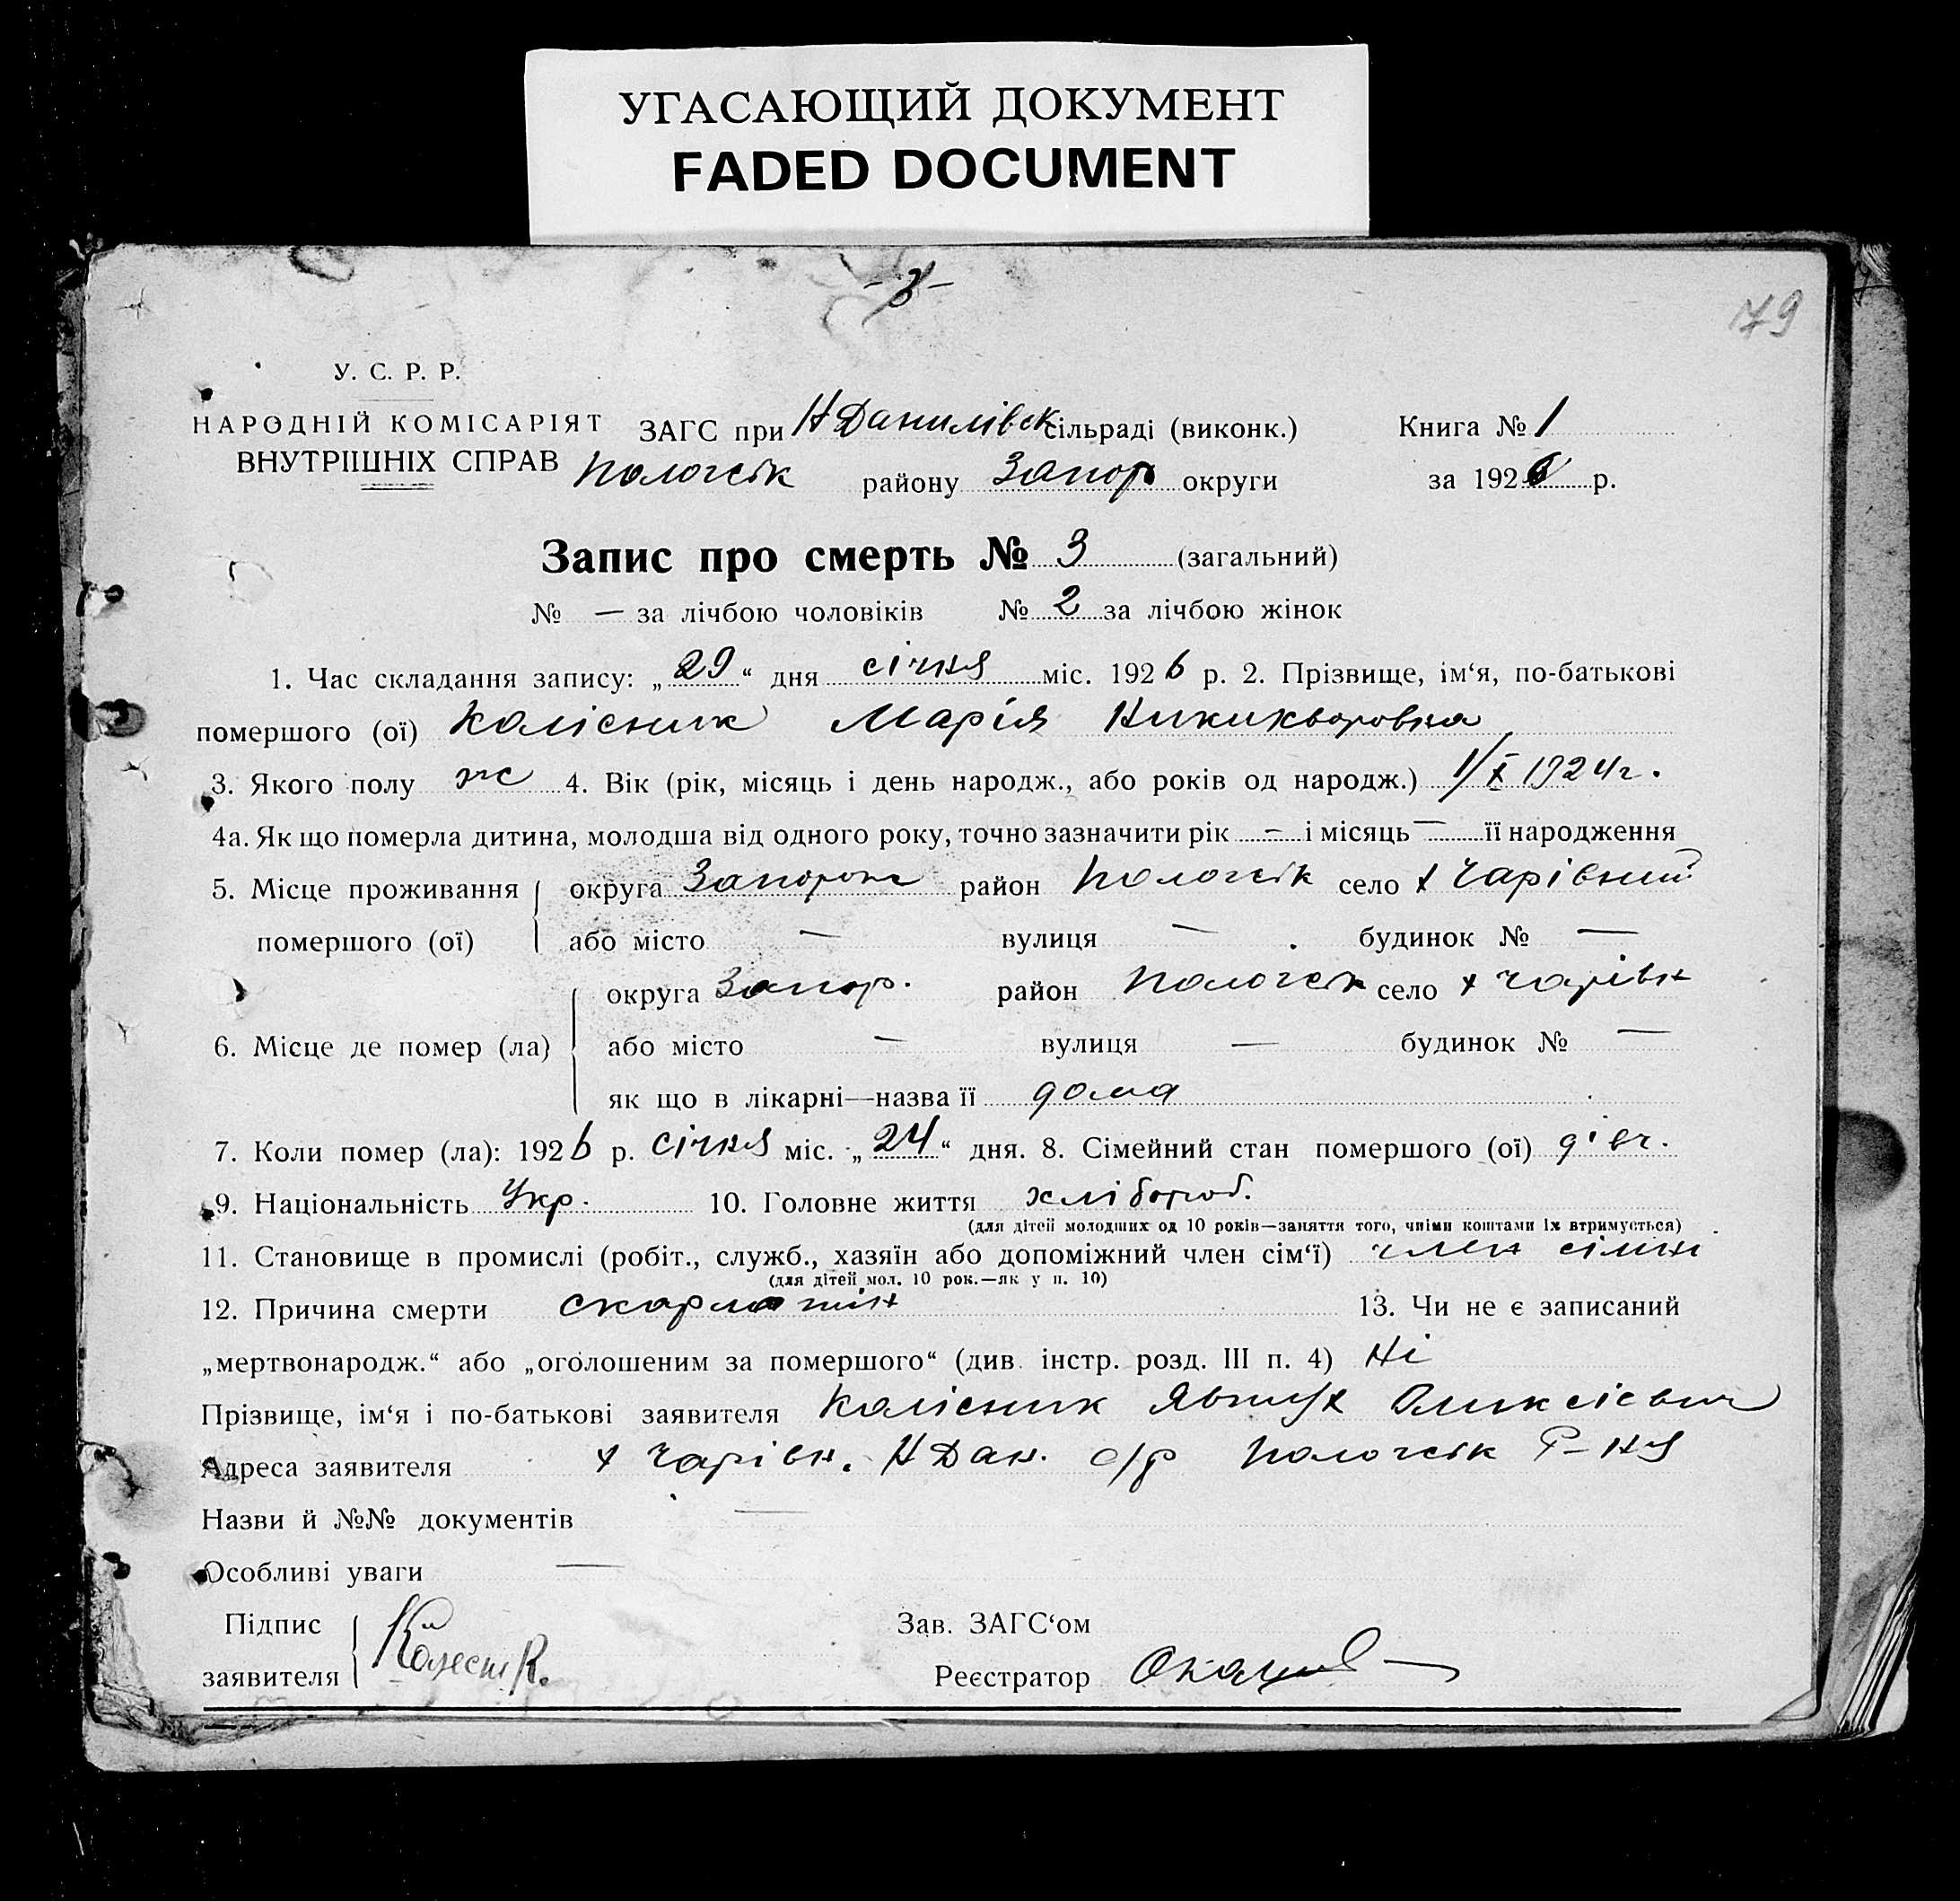 УГАСАЮЩИЙ ДОКУМЕНТ
FADED DOCUMENT
-3-
179
У. С. Р. Р.
НАРОДНІЙ КОМІСАРІЯТ ЗАГС при Н Данилівск сільраді (виконк.) Книга № 1
ВНУТРІШНІХ СПРАВ Пологськ району Запор округи за 1926 р.
Запис про смерть № 3 (загальний)
№ — за лічбою чоловіків № 2 за лічбою жінок
1. Час складання запису: „29“ дня січня міс. 1926 р. 2. Прізвище, ім‘я, по-батькові
помершого (ої) Колісник Марія Никихворовна
3. Якого полу ж 4. Вік (рік, місяць і день народж., або років од народж.) 1/X 1924 г.
4а. Як що померла дитина, молодша від одного року, точно зазначити рік — і місяць — її народження
5. Місце проживання округа Запорож район Пологськ село х Чарівний
помершого (ої) або місто — вулиця — будинок № —
округа Запор. район Пологськ село х Чарівн
6. Місце де помер (ла) або місто — вулиця — будинок № —
як що в лікарні—назва її дома
7. Коли помер (ла): 1926 р. січня міс. „24“ дня. 8. Сімейний стан помершого (ої) дівч.
9. Національність Укр. 10. Головне життя хлібороб.
(для дітей молодших од 10 років—заняття того, чиїми коштами їх втримується)
11. Становище в промислі (робіт., служб., хазяїн або допоміжний член сім‘ї) член сімьи
(для дітей мол. 10 рок.—як у п. 10)
12. Причина смерти скарлатин 13. Чи не є записаний
„мертвонародж.“ або „оголошеним за помершого“ (див. інстр. розд. III п. 4) Ні
Прізвище, ім‘я і по-батькові заявителя Колісник Явтух Олексієвич
Адреса заявителя х Чарівн. Н Дан. с/р Пологськ Р-ня
Назви й №№ документів —
Особливі уваги —
Підпис Зав. ЗАГС‘ом
заявителя Колесник. Реєстратор